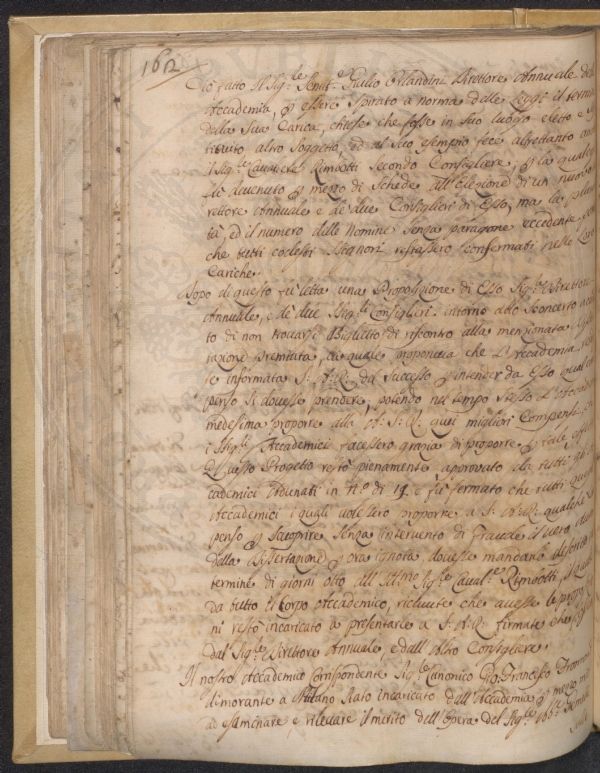 162
Ciò fatto il Sig.re Senat.e Giulio Orlandini Direttore Annuale dell
Accademia, p essere spirato a norma delle Leggi il termi
della Sua Carica, chiese che fosse in suo luogo eletto e
tituito altro Soggetto, ed al Suo esempio fece altrettanto
il Sig.re Cavaliere Rimbotti secondo Consigliere, p la qual
fù devenuto p mezzo di Schede all'elezione di un nuovo
rettore Annuale e de' due Consiglieri di Esso, ma la plura
ità, ed il numero delle Nomine senza paragone eccedente,
che tutti codesti Signori restassero confermati nelle Loro
Cariche.
Dopo di questo fù letta una Proposizione di Esso Sig.re Direttore
Annuale, e de' due Sig.ri Consiglieri intorno allo sconcerto
to di non trovarsi Biglietto di riscontro alla menzionata
tazione Premiata, la quale proponeva che L'Accademia
se informata S. A. R. del successo p intender da Esso qual
penso si dovesse prendere, potendo nel tempo stesso L'Accademia
medesima proporre alla S. R. quei migliori Compensi
i Sig.ri Accademici facessero grazia di proporre p tale
Questo Progetto restò pienamente approvato da tutti gli
cademici Adunati in n.o di 19 e fù fermato che tutti quei
Accademici i quali volessero proporre a S. A. R. qualche
penso p scuoprire senza intervento di Fraude il vero
della Dissertazione p ora ignota dovesse mandarlo
termine di giorni otto all' Sig.re Caval.re Rimbotti, il quale
da tutto il Corpo Accademico, ricevute che avesse le
ni restò incaricato a presentare a S. A. R. firmate che
dal Sig.re Direttore Annuale, e dall'Altro Consigliere.
Il nostro Accademico Corrispondente Sig.re Canonico Gio. Francesco
dimorante a Milano stato incaricato dall'Accademia p mezzo
ad esaminare, e rilevare il merito dell'Opera del Sig.re